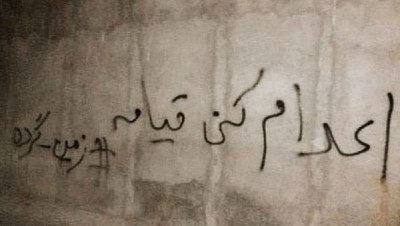 اعدام کنی قیامه #زمین_گرده